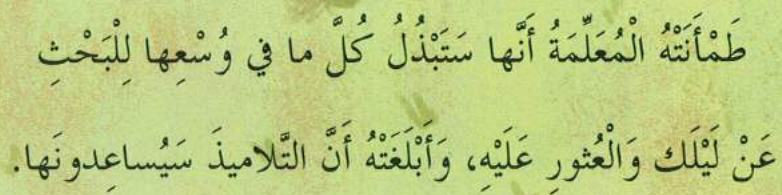 طَمْأَنَتْهُ الْمُعَلِّمَةُ أَنَّها سَتَبْذُلُ كُلَّ ما في وُسْعِها لِلْبَحْثِ
عَنْ لَيْلَك وَالْعُثورِ عَلَيْهِ، وَأَبْلَغَتْهُ أَنَّ التَّلاميذَ سَيُساعِدونَها.